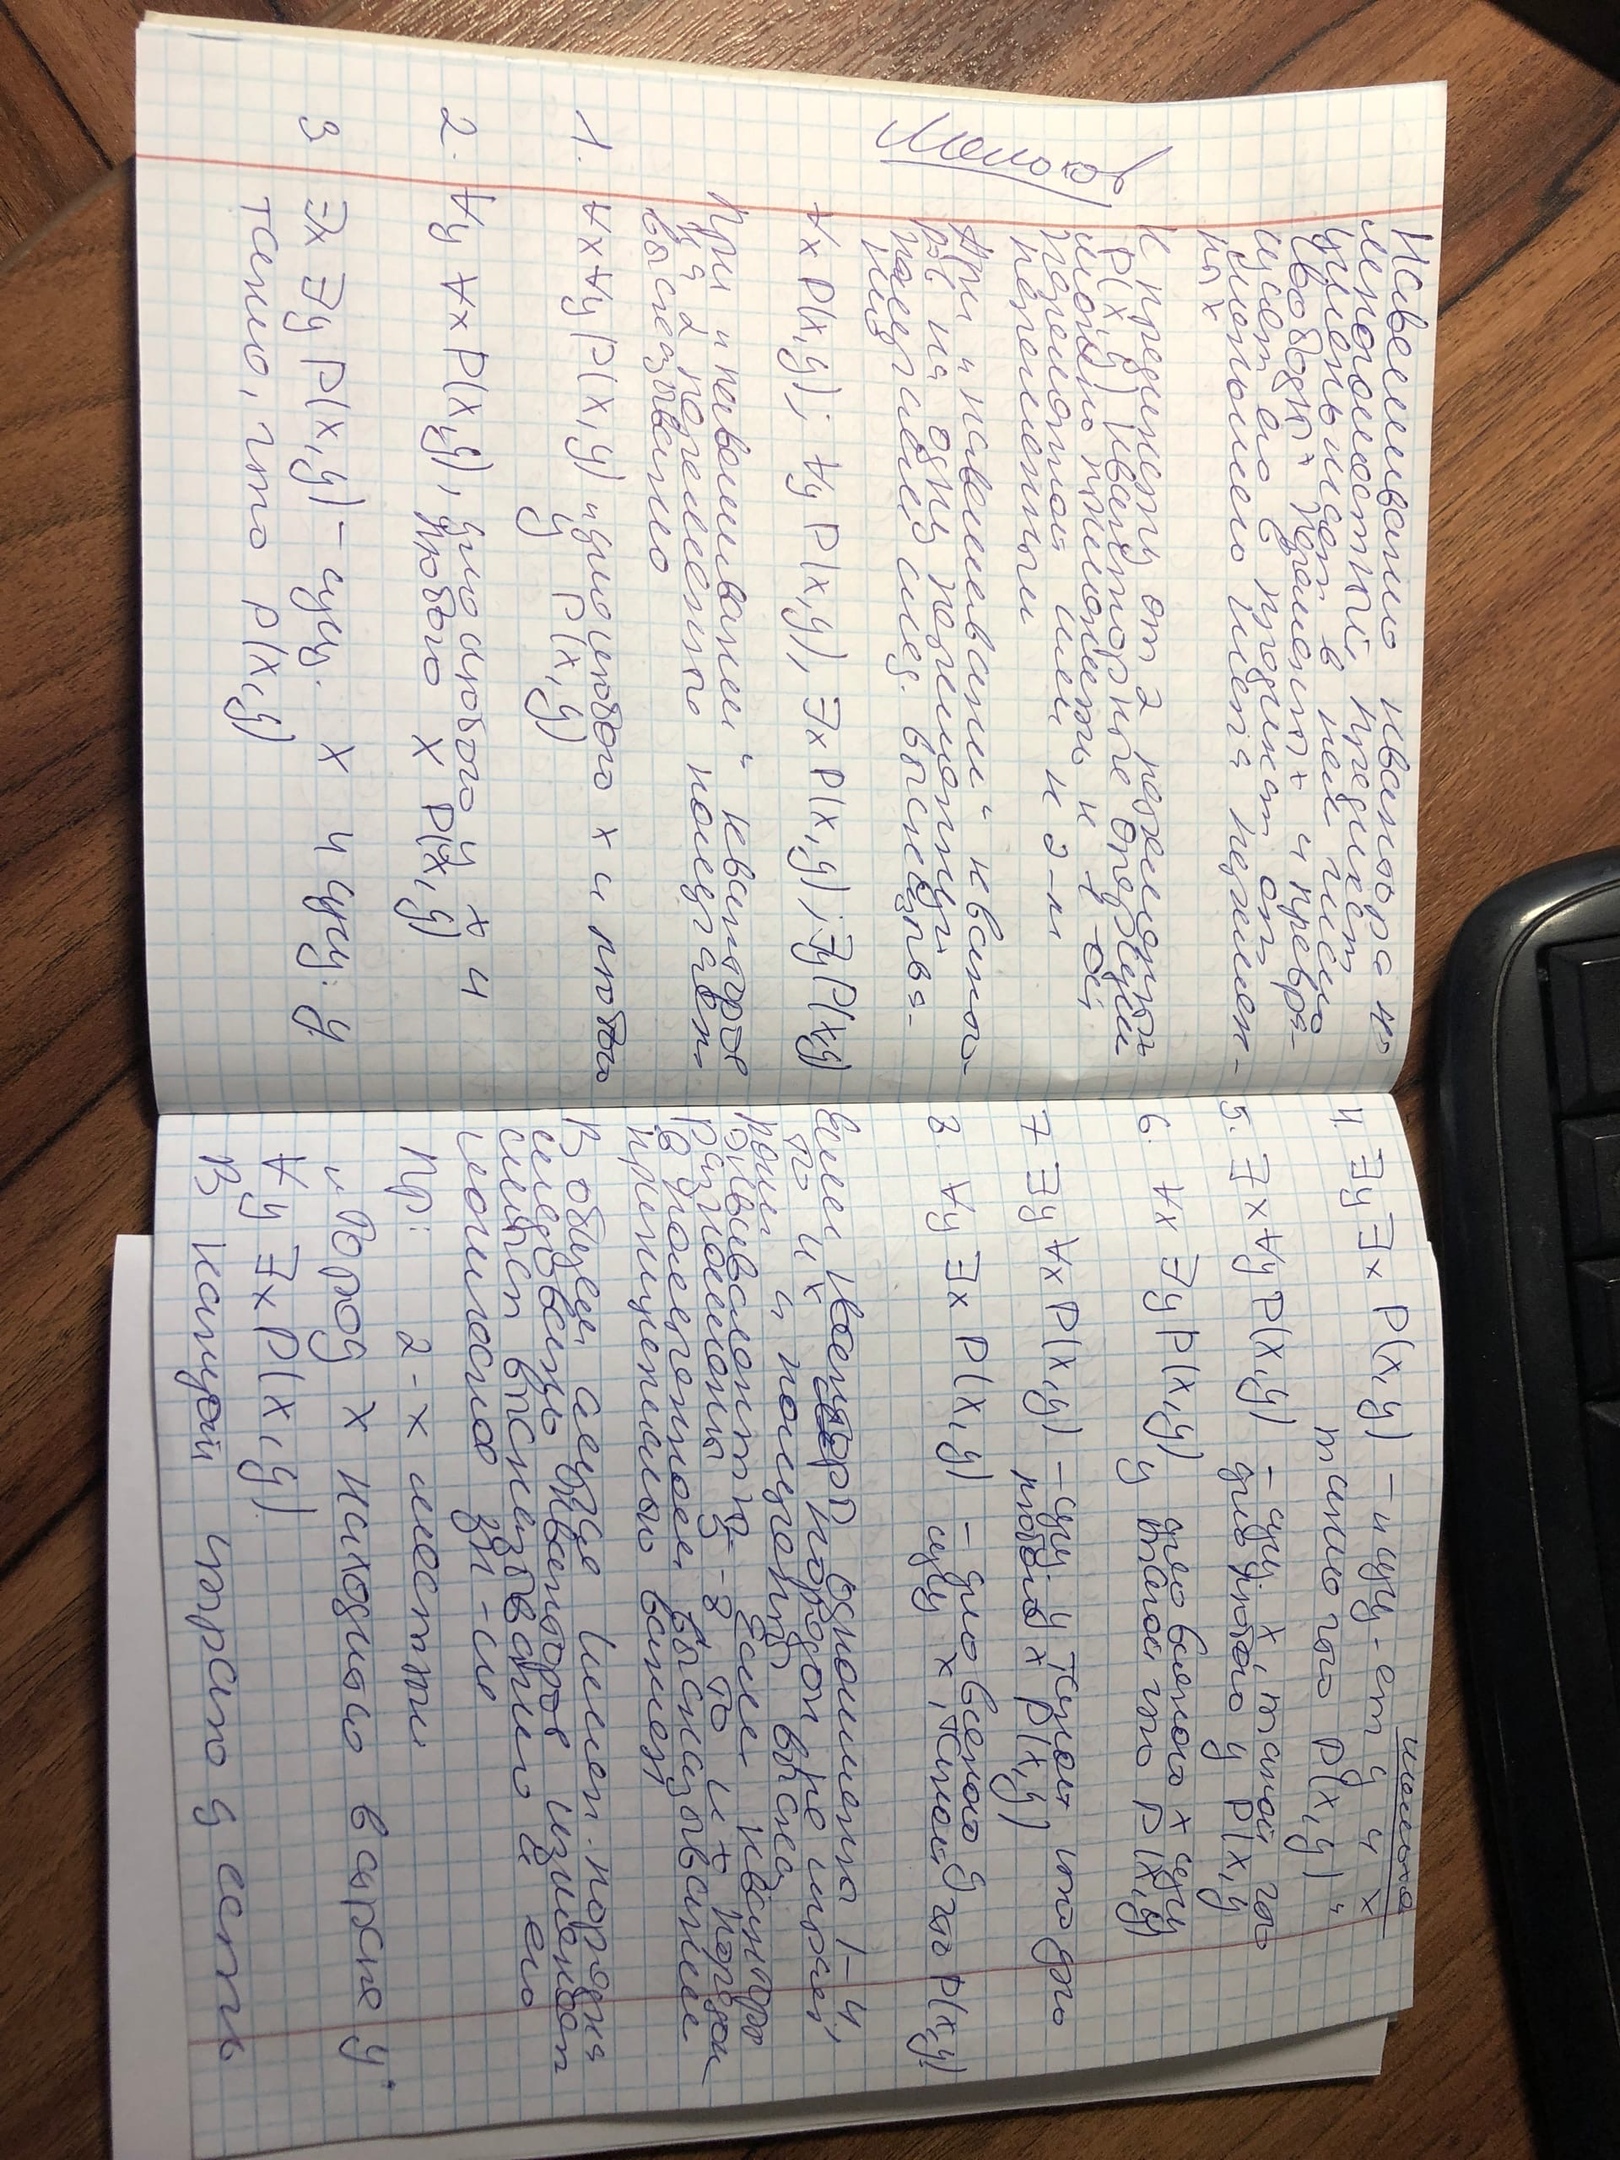 Навешивание квантора на
многоместный предикат
уменьшает в нем число
свободных переменных и превра-
щает его в предикат от
меньшего числа перемен-
ных
К предикату от 2 переменных
P(x,y) кванторные операции
можно применить к 1-ой
переменной или к 2-м
переменным
При "навешивании" кванто-
ров на одну переменную
получаем след. высказыва-
ние
∀x P(x,y); ∀y P(x,y), ∃x P(x,y); ∃y P(x,y)
При "навешивании" кванторов
на 2 переменные получаем
высказывание
1. ∀x ∀y P(x,y) "для любого x и любого
y P(x,y)
2. ∀y ∀x P(x,y), для любого y и
любого x P(x,y)
3 ∃x ∃y P(x,y) – сущ. x и сущ. y
такие, что P(x,y)
4. ∃y ∃x P(x,y) – "сущ-ет y и x
такие что P(x,y)"
5. ∃x ∀y P(x,y) – сущ. x, такой что
для любого y P(x,y
6. ∀x ∃y P(x,y) для всякого x сущ
y такой что P(x,y)
7 ∃y ∀x P(x,y) – сущ. y такой что для
любого x P(x,y)
8. ∀y ∃x P(x,y) – для всякого y
сущ x, такой что P(x,y)
Если кванторы одноименны 1-4,
то их порядок не играет
роли и полученны выска.
эквивалентны. Если кванторы
разноимены 5-8, то их порядок
в полученном высказывании
принципиально важен
В общем случае измен. порядка
следования кванторов изменяет
смысл высказывания и его
логическое зн-ие
Пр: 2-х местный
"Город x находится в стране y"
∀y ∃x P(x,y)
В каждой стране y есть